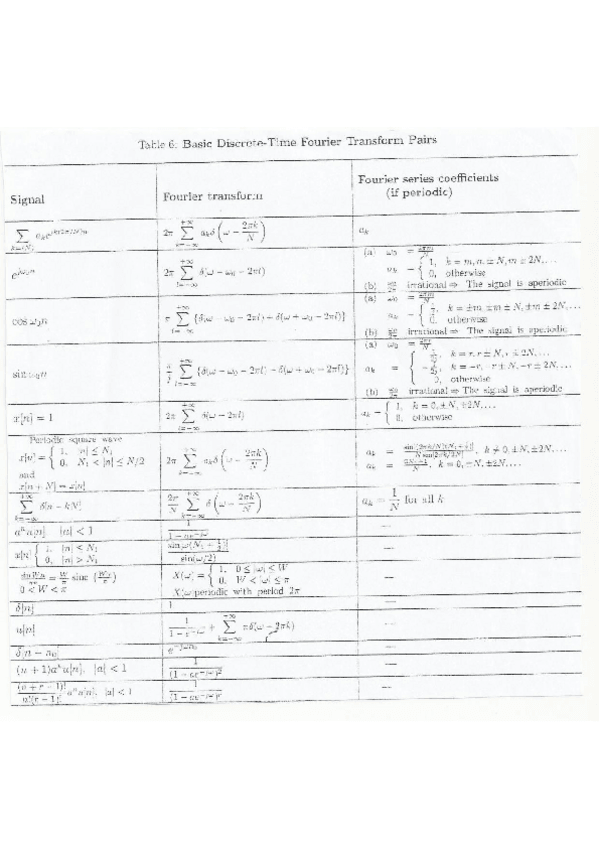 Table 6: Basic Discrete-Time Fourier Transform Pairs
Signal
Fourier transform
Fourier series coefficients
(if periodic)
2π ∑ a_k δ(ω − 2πk/N)
a_k
e^{jω₀n}
2π ∑ δ(ω − ω₀ − 2πl)
(a) ω₀ = 2πm/N
a_k = { 1, k = m, m ± N, m ± 2N, ...
0, otherwise
(b) irrational ⇒ The signal is aperiodic
cos ω₀n
π ∑ {δ(ω − ω₀ − 2πl) + δ(ω + ω₀ − 2πl)}
(a) ω₀ = 2πm/N
k = ±m, ±m ± N, ±m ± 2N, ...
0, otherwise
(b) irrational ⇒ The signal is aperiodic
sin ω₀n
π/j ∑ {δ(ω − ω₀ − 2πl) − δ(ω + ω₀ − 2πl)}
(a) ω₀ =
k = r, r ± N, r ± 2N, ...
a_k = k = −r, −r ± N, −r ± 2N, ...
0, otherwise
(b) irrational ⇒ The signal is aperiodic
x[n] = 1
2π ∑ δ(ω − 2πl)
a_k = { 1, k = 0, ±N, ±2N, ...
0, otherwise
Periodic square wave
x[n] = { 1, |n| ≤ N₁
0, N₁ < |n| ≤ N/2
and
x[n + N] = x[n]
2π ∑ a_k δ(ω − 2πk/N)
a_k = sin[(2πk/N)(N₁ + ½)] / N sin[2πk/2N], k ≠ 0, ±N, ±2N, ...
a_k = k = 0, ±N, ±2N, ...
∑ δ[n − kN]
2π/N ∑ δ(ω − 2πk/N)
a_k = 1/N for all k
aⁿu[n], |a| < 1
1/(1 − ae^{−jω})
—
x[n] { 1, |n| ≤ N₁
0, |n| > N₁
sin[ω(N₁ + ½)] / sin(ω/2)
—
sin Wn/πn = W/π sinc (Wn/π)
0 < W < π
X(ω) = { 1, 0 ≤ |ω| ≤ W
0, W < |ω| ≤ π
X(ω) periodic with period 2π
—
δ[n]
1
—
u[n]
1/(1 − e^{−jω}) + ∑ πδ(ω − 2πk)
—
δ[n − n₀]
e^{−jωn₀}
—
(n + 1)aⁿu[n], |a| < 1
1/(1 − ae^{−jω})²
—
(n + r − 1)!/n!(r − 1)! aⁿu[n], |a| < 1
1/(1 − ae^{−jω})^r
—